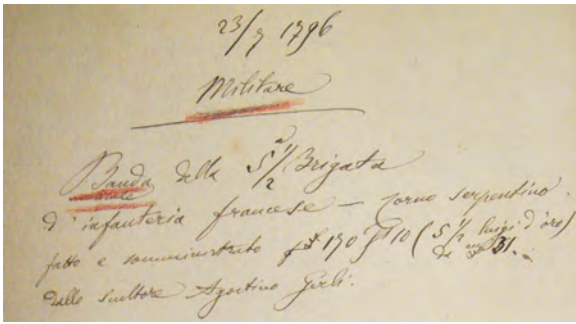 23/7 1796
Militare
Banda della 5ª 1/2 Brigata
d'infanteria francese — corno serpentino
fatto e somministrato 170 10 (5 1/2 luigi d'oro)
dallo scultore Agostino Gerli.